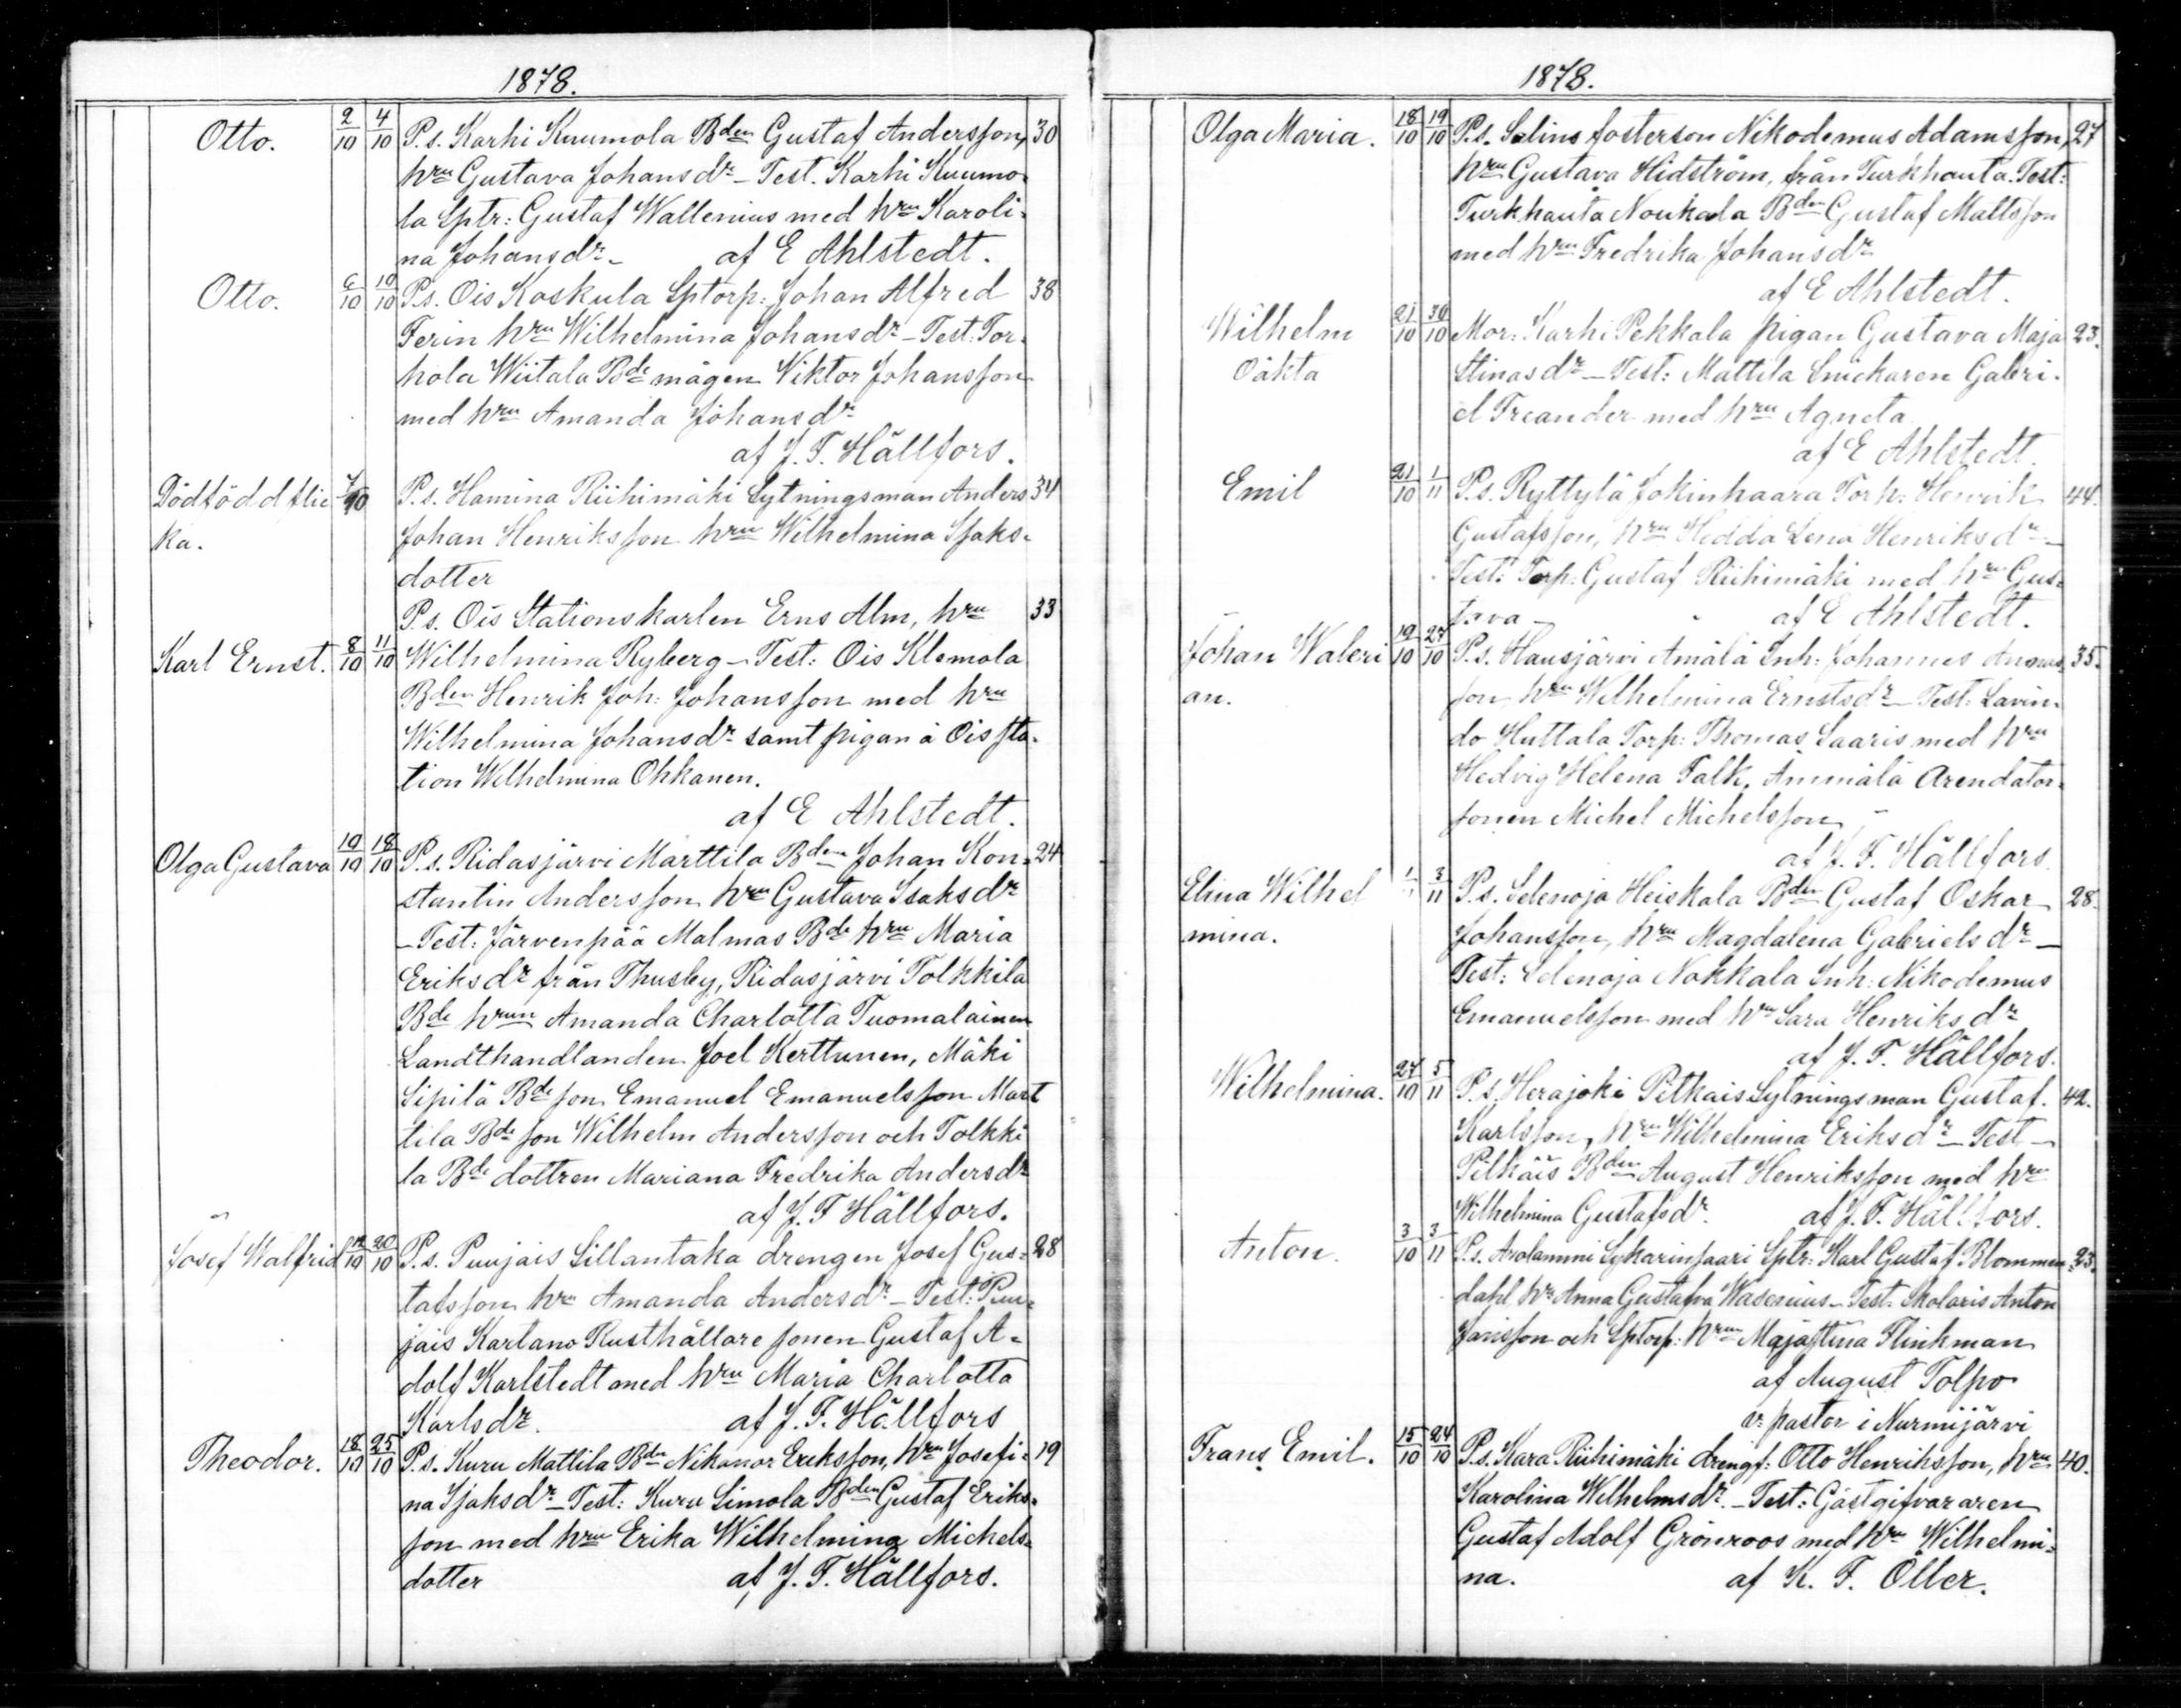 1878.
Otto. 2/10 4/10 P.s. Karhi Kuumola Bden Gustaf Andersson, 30
hru Gustava Johansdr – Test. Karhi Kuumo-
la Sptr: Gustaf Wallenius med hru Karoli-
na Johansdr – af E Ahlstedt.
Otto. 6/10 10/10 P.s. Ois Koskula Sptorp: Johan Alfred 38
Ferin hru Wilhelmina Johansdr – Test: Tor-
hola Wiitala Bde mågen Viktor Johansson
med hru Amanda Johansdr
af J. F. Hällfors.
Dödfödd flic- 7/10 P.s. Hamina Riihimäki Sytningsman Anders 34
ka. Johan Henriksson hru Wilhelmina Isaks-
dotter
P.s. Ois Stationskarlen Erns Alm, hru 33
Karl Ernst. 8/10 11/10 Wilhelmina Ryberg – Test: Ois Klemola
Bden Henrik Joh: Johansson med hru
Wilhelmina Johansdr samt pigan å Ois sta-
tion Wilhelmina Ohkanen.
af E Ahlstedt.
Olga Gustava 10/10 18/10 P.s. Ridasjärvi Marttila Bden Johan Kon- 24
stantin Andersson hru Gustava Isaksdr
– Test: Järvenpää Malmas Bde hru Maria
Eriksdr från Thusby, Ridasjärvi Tolkkila
Bde hrun Amanda Charlotta Tuomalainen
Landthandlanden Joel Kerttunen, Mäki
Sipilä Bde son Emanuel Emanuelsson Mart
tila Bde son Wilhelm Andersson och Tolkki
la Bde dottren Mariana Fredrika Andersdr
af J. F Hällfors.
Josef Walfrid 12/10 20/10 P.s. Puujais Sillantaka drengen Josef Gus- 28
tafsson hru Amanda Andersdr – Test: Puu-
jais Kartano Rusthållare sonen Gustaf A-
dolf Karlstedt med hru Maria Charlotta
Karlsdr. af J. F. Hällfors
Theodor. 18/10 25/10 P.s. Kuru Mattila Bden Nikanor Eriksson, hru Josefi- 19
na Isaksdr – Test: Kuru Simola Bden Gustaf Eriks-
son med hru Erika Wilhelmina Michels-
dotter af J. F. Hällfors.
1878.
Olga Maria. 18/10 19/10 P.s. Selins fosterson Nikodemus Adamsson, 27
hru Gustava Hidström, från Turkhauta. Test:
Turkhauta Noukala Bden Gustaf Mattsson
med hru Fredrika Johansdr
af E Ahlstedt.
Wilhelm 21/10 30/10 Mor: Karhi Pekkala pigan Gustava Maja 23.
Oäkta Stinasdr – Test: Mattila Snickaren Gabri-
el Freander med hru Agneta
af E Ahlstedt
Emil 21/10 1/11 P.s. Ryttylä Jokinhaara Torp: Henrik 44.
Gustafsson, hru Hedda Lena Henriksdr –
Test: Torp: Gustaf Riihimäki med hru Gus-
tava – af E Ahlstedt.
Johan Waleri 19/10 27/10 P.s. Hausjärvi Amälä Inh: Johannes 35.
an. son hru Wilhelmina Ernstsdr – Test: Lavin-
do Huttala Torp: Thomas Saaris med hru
Hedvig Helena Falk, Ämmälä Arendator-
sonen Michel Michelsson
af J. F. Hällfors.
Elina Wilhel 3/11 P.s. Selenoja Heiskala Bden Gustaf Oskar 28.
mina. Johansson, hru Magdalena Gabrielsdr –
Test: Selenoja Nokkala Inh: Nikodemus
Emanuelsson med hru Sara Henriksdr
af J. F. Hällfors.
Wilhelmina. 27/10 5/11 P.s. Herajoki Pitkais Sytningsman Gustaf. 42.
Karlsson, hru Wilhelmina Eriksdr – Test –
Pitkäis Bden August Henriksson med hru
Wilhelmina Gustafsdr. af J. F. Hällfors.
Anton. 3/10 3/11 P.s. Arolammi Sykärinsaari Sptr: Karl Gustaf Blommen- 23.
dahl hru Anna Gustafva Wasenius – Test: Skolaris Anton
Jansson och Sptorp: hrun Majastina Flinkman
af August Tolpo
v: pastor i Nurmijärvi
Frans Emil. 15/10 24/10 P.s. Kara Riihimäki drengf: Otto Henriksson, hru 40.
Karolina Wilhelmsdr. – Test: Gästgifvararen
Gustaf Adolf Grönroos med hru Wilhelmi-
na. af K. F. Öller.